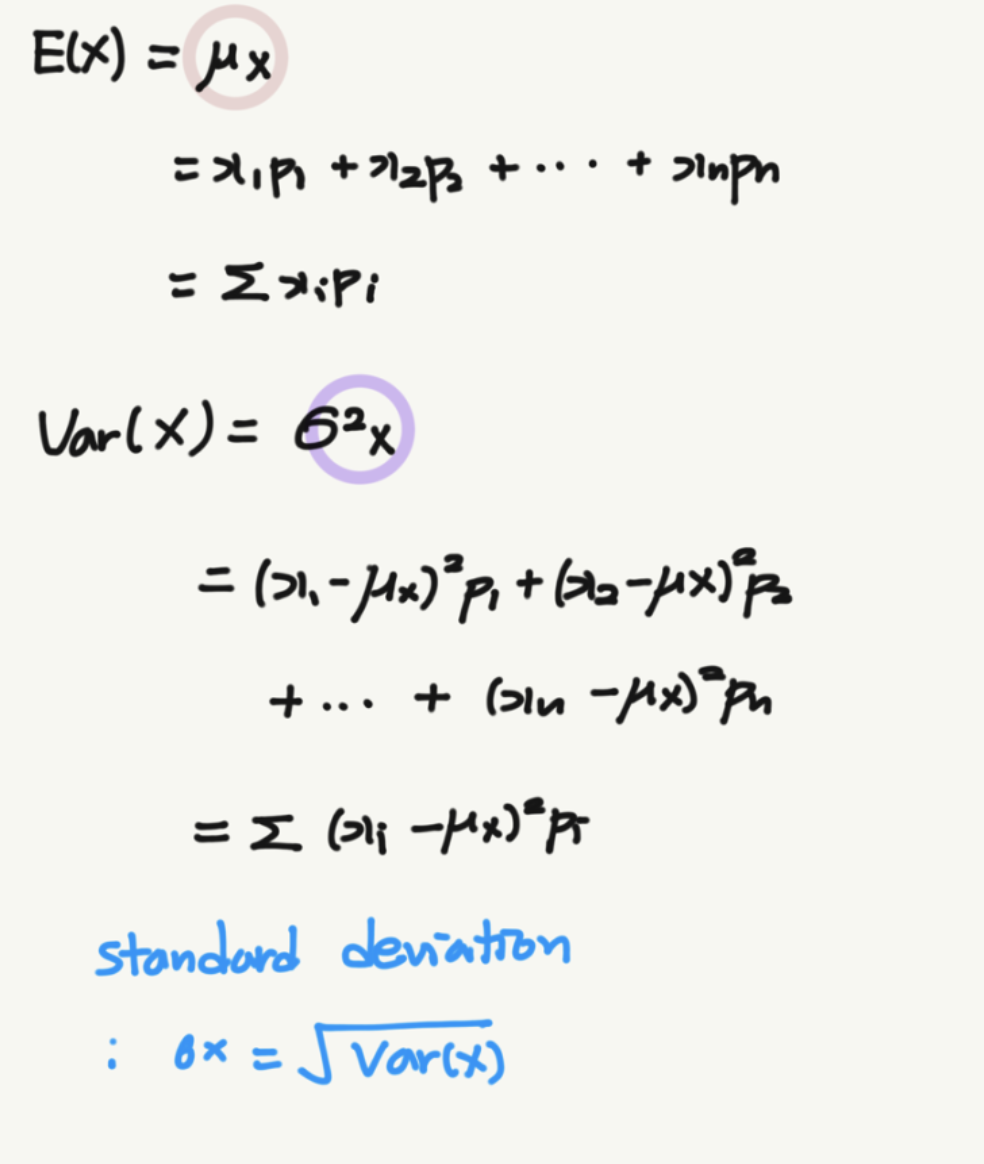 E(X) = μx
= x₁p₁ + x₂p₂ + ... + xₙpₙ
= Σxᵢpᵢ
Var(X) = σ²x
= (x₁-μx)²p₁ + (x₂-μx)²p₂
+ ... + (xₙ-μx)²pₙ
= Σ (xᵢ-μx)²pᵢ
standard deviation
: σx = √Var(X)